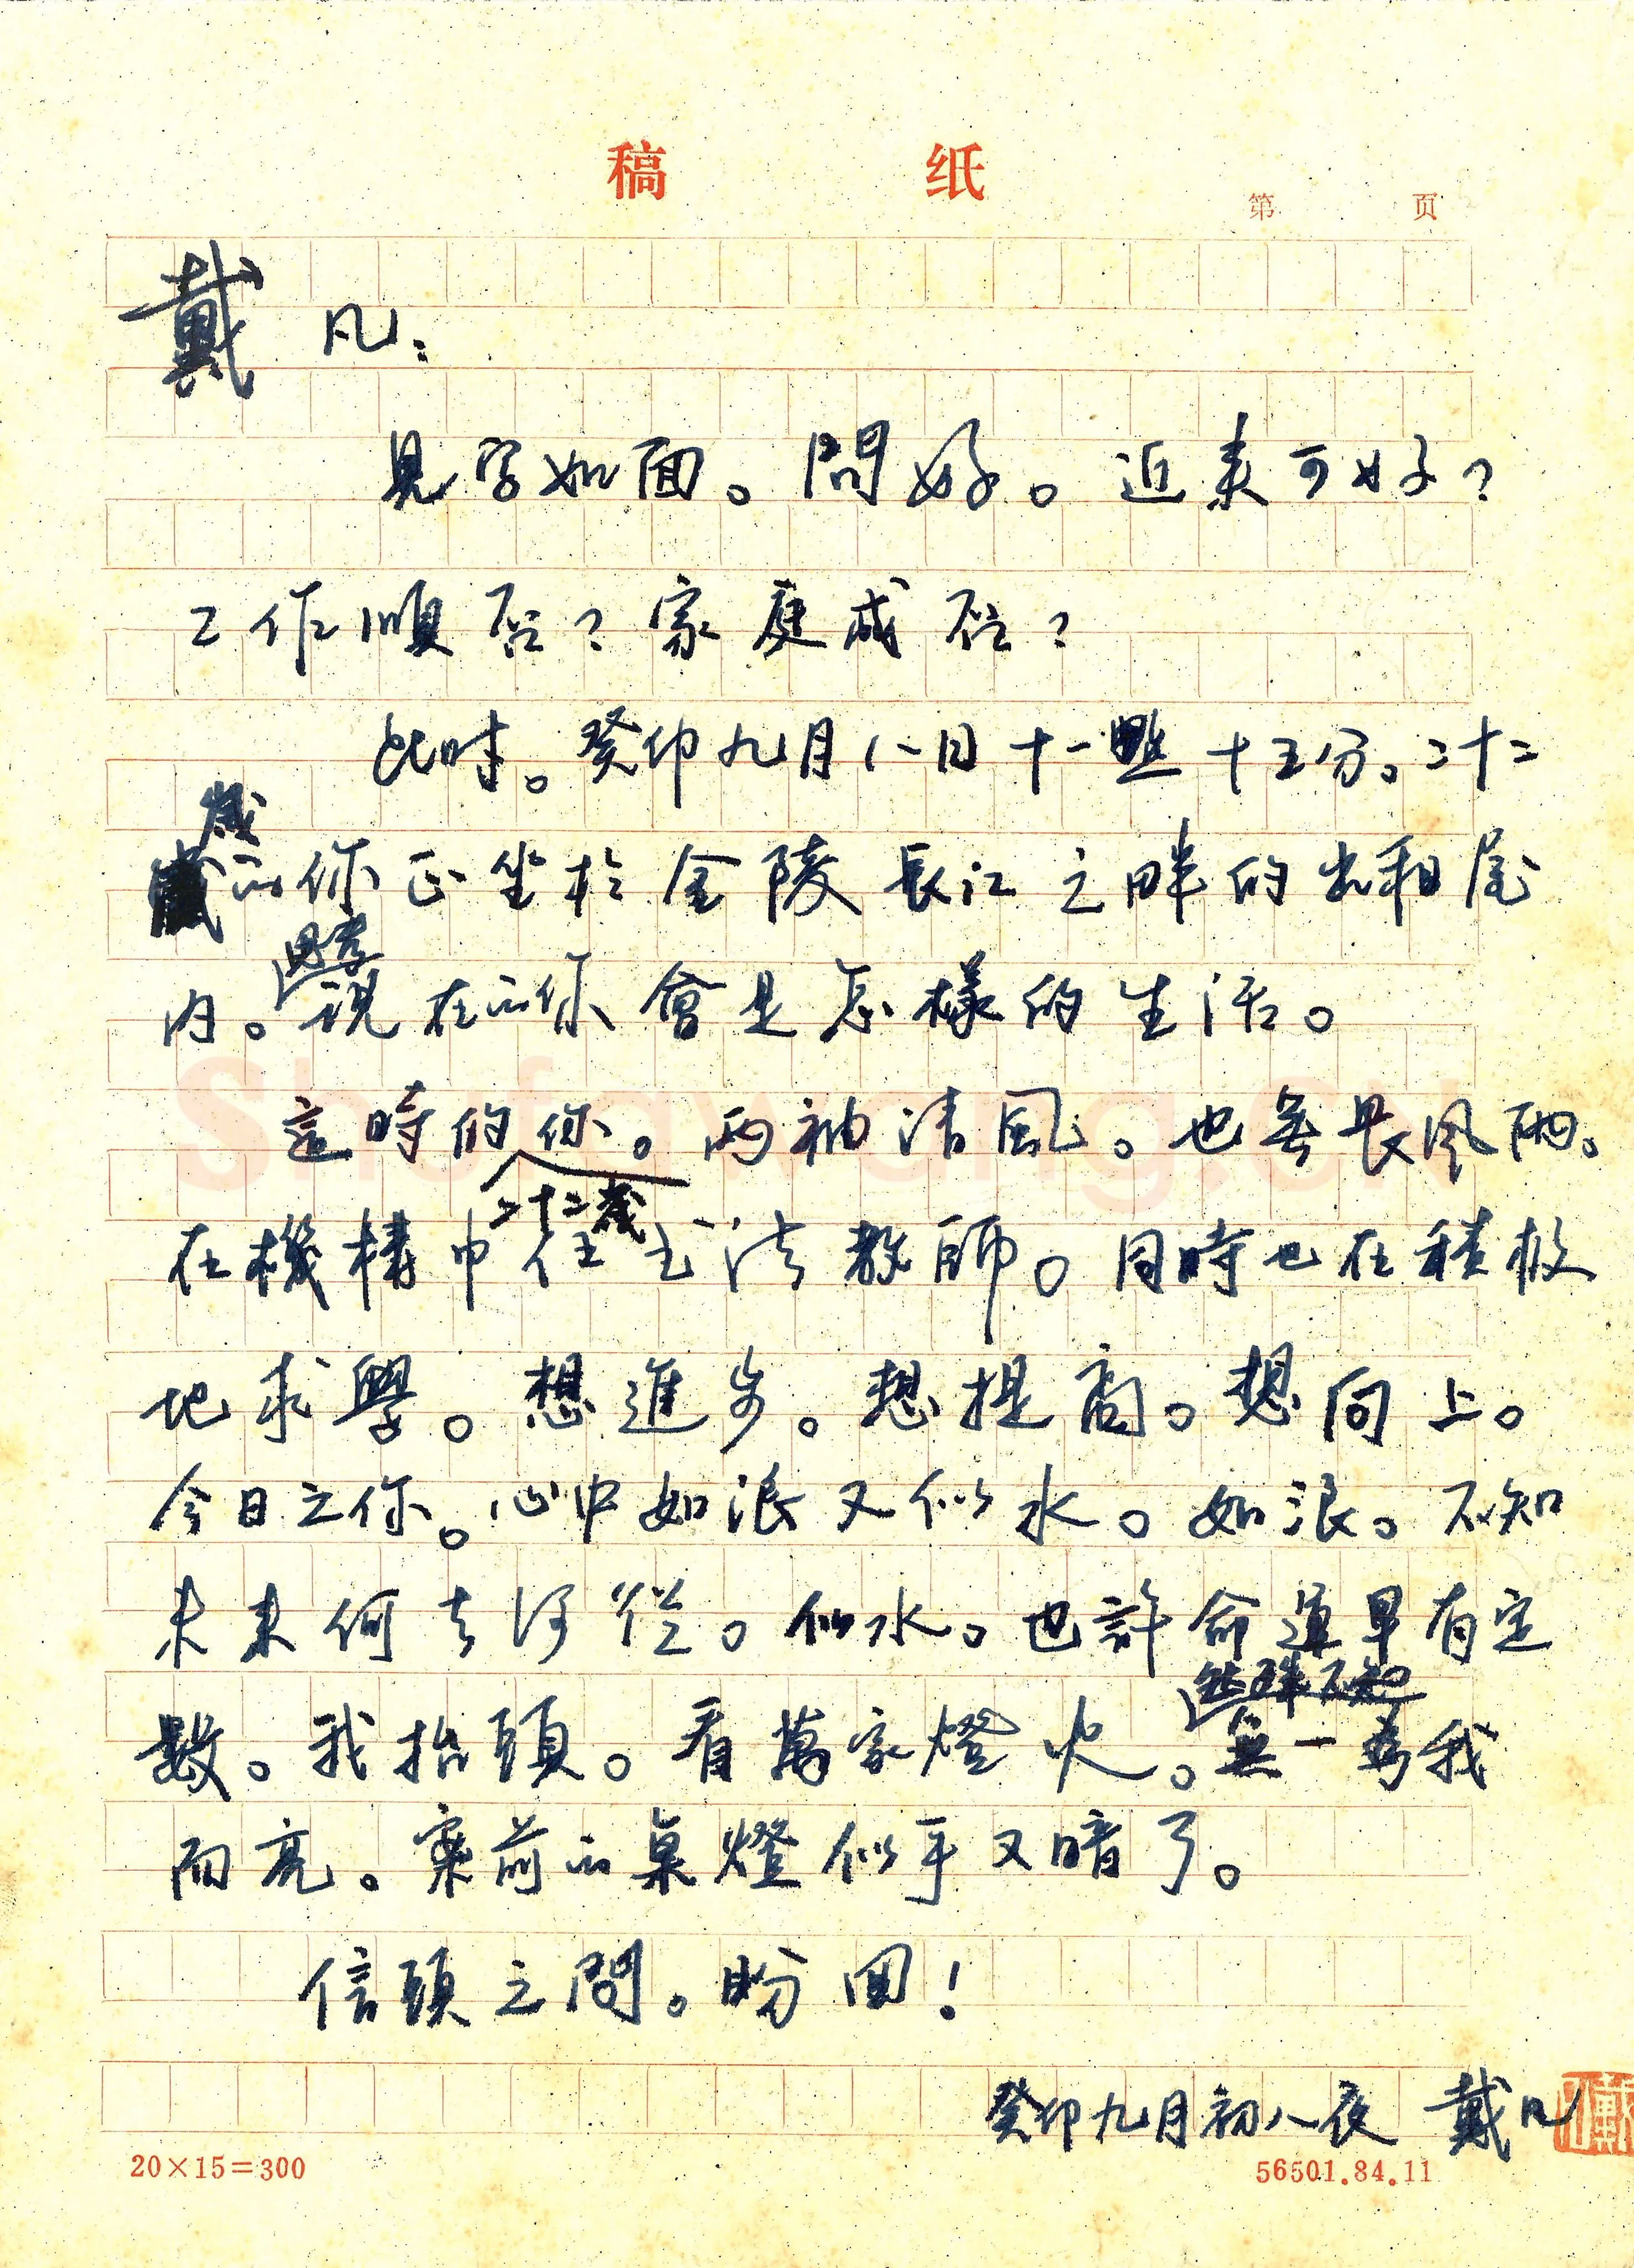 稿 纸
第 页
戴凡：
見字如面。問好。近来可好？
工作順否？家庭成否？
此时。癸卯九月八日十一點十五分。二十二
歲的你正坐於金陵長江之畔的出租屋
内。思考現在的你會是怎樣的生活。
這時的你。两袖清風。也無畏风雨。
二十二歲
在機構中任书法教師。同時也在積极
地求學。想進步。想提高。想向上。
今日之你。心中如浪又似水。如浪。不知
未来何去何從。似水。也許命運早有定
數。我抬頭。看萬家燈火。然殊不知無一為我
而亮。案前的桌燈似乎又暗了。
信頭之問。盼回！
癸卯九月初八夜 戴凡
20×15=300
56501.84.11